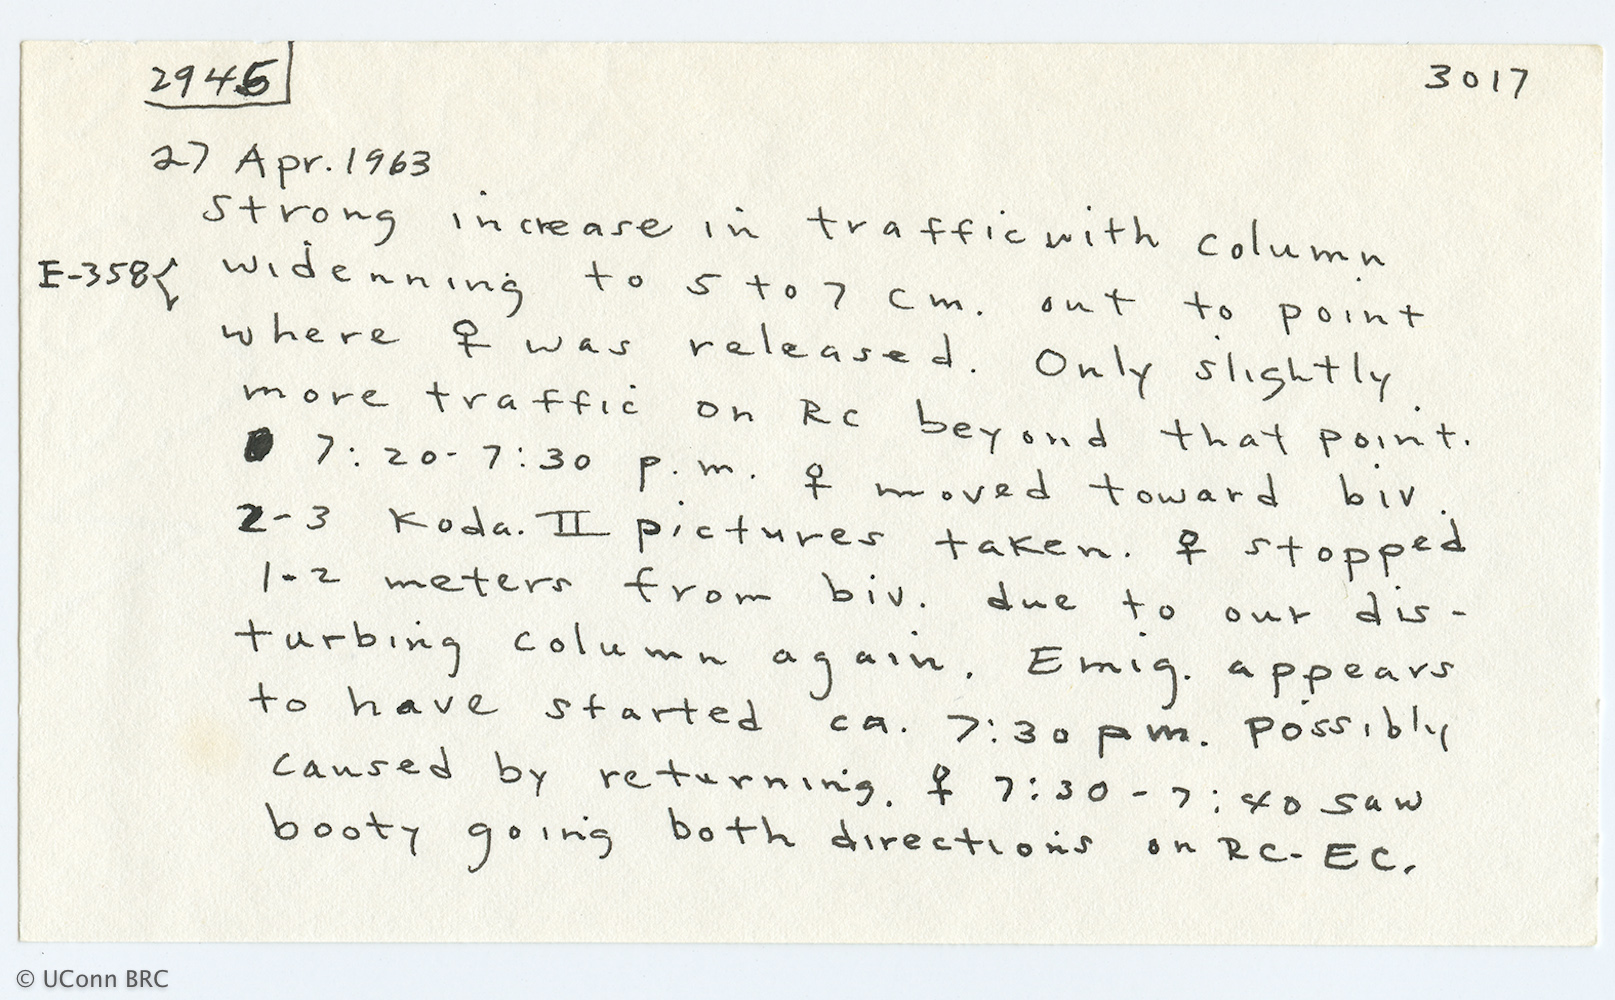 2945
3017
27 Apr. 1963
strong increase in traffic with column
E-358{ widenning to 5 to 7 cm. out to point
where ♀ was released. Only slightly
more traffic on RC beyond that point.
7:20-7:30 p.m. ♀ moved toward biv.
2-3 Koda. II pictures taken. ♀ stopped
1-2 meters from biv. due to our dis-
turbing column again. Emig. appears
to have started ca. 7:30 pm. possibly
caused by returning. ♀ 7:30-7:40 saw
booty going both directions on RC-EC.
© UConn BRC